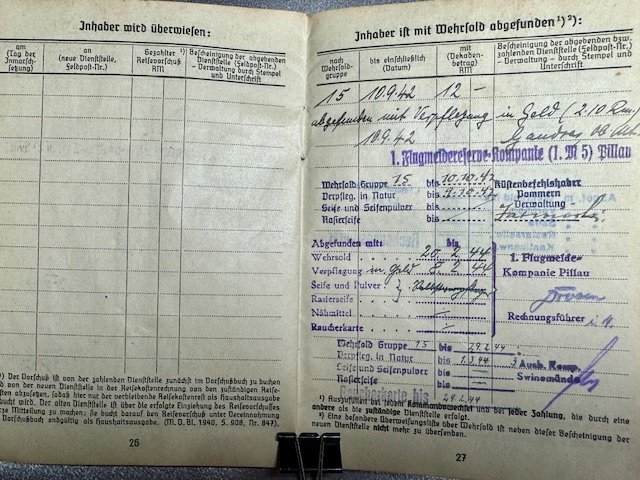 Inhaber wird überwiesen:
am
(Tag der
Inmarsch-
setzung)
an
(neue Dienststelle,
Feldpost-Nr.)
Gezahlter ¹)
Reisevorschuß
RM
Bescheinigung der abgebenden
Dienststelle (Feldpost-Nr.)
- Verwaltung - durch Stempel
und Unterschrift
¹) Der Vorschuß ist von der zahlenden Dienststelle zunächst im Vorschußbuch zu buchen
und von der neuen Dienststelle in der Reisekostenrechnung von den zuständigen Reise-
kosten abzusetzen, sodaß hier nur der verbleibende Reisekostenrest als Haushaltsausgabe
gebucht wird. Der alten Dienststelle ist über die erfolgte Einziehung des Reisevorschusses
Mitteilung zu machen; sie bucht darauf den Reisevorschuß unter Gegenantragung
Vorschußbuch endgültig als Haushaltsausgabe. (M. D. Bl. 1940, S. 908, Nr. 847).
26
Inhaber ist mit Wehrsold abgefunden¹)²):
nach
Wehrsold-
gruppe
bis einschließlich
(Datum)
mit
(Dekaden-
betrag)
RM
Bescheinigung der abgebenden bzw.
zahlenden Dienststelle (Feldpost-Nr.)
- Verwaltung - durch Stempel und
Unterschrift
15 10.9.42 12 -
abgefunden mit Verpflegung in Geld (2.10 Rm)
10.9.42
1. Flugmeldereserve-Kompanie (1. M 5) Pillau
Wehrsold Gruppe 15 bis 10.10.42
Verpfleg. in Natur bis 9.10.42
Seife und Seifenpulver bis
Rasierseife bis
Küstenbefehlshaber
Pommern
- Verwaltung -
Abgefunden mit: bis
Wehrsold 20. 2. 44
Verpflegung in Geld 8. 2. 44
Seife und Pulver
Rasierseife
Nähmittel
Raucherkarte
1. Flugmelde-
Kompanie Pillau
Rechnungsführer
Wehrsold Gruppe 15 bis 29.2.44
Verpfleg. in Natur bis 1.3.44
Seife und Seifenpulver bis
Rasierseife bis
Raucherkarte bis 29.2.44
3 Ausb. Komp.
Swinemünde
¹) Auszufüllen bei jedem Kommandowechsel und bei jeder Zahlung, die durch eine
andere als die zuständige Dienststelle erfolgt.
²) Eine besondere Überweisungsliste über Wehrsold ist neben dieser Bescheinigung der
neuen Dienststelle nicht mehr zu übersenden.
27